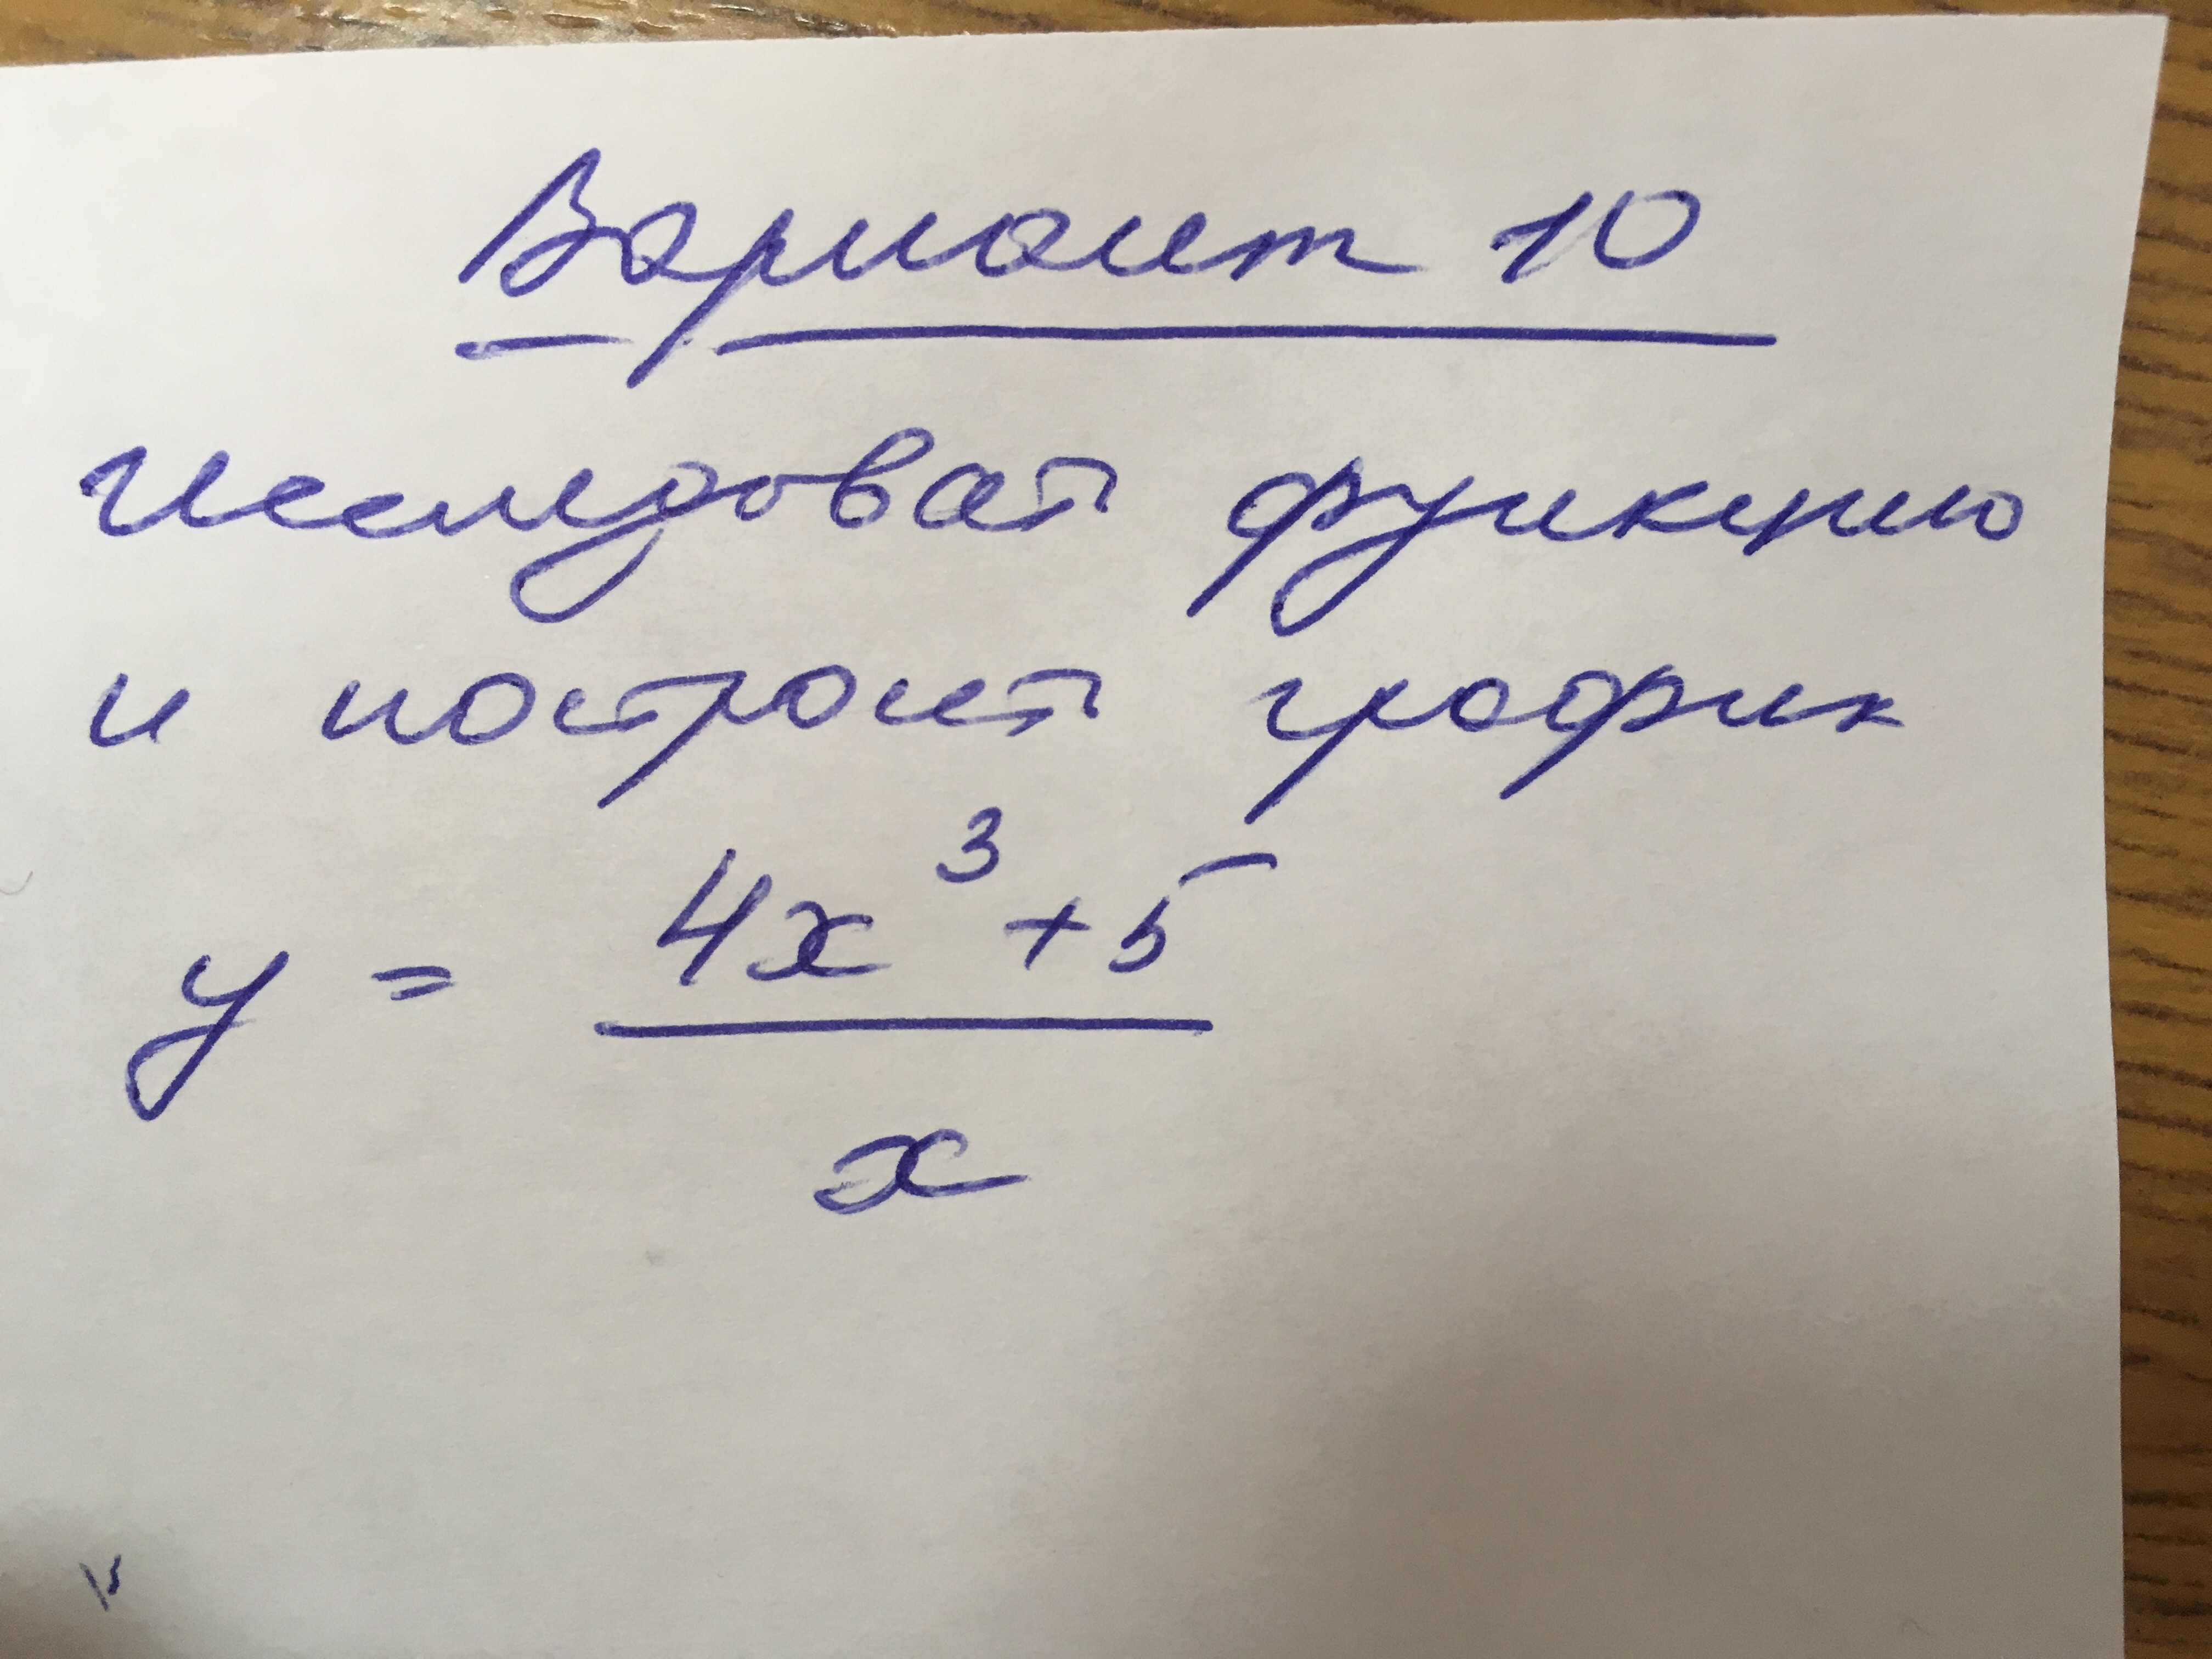 Вариант 10
Исследоват функцию
и построит график
y = 4x³+5
x